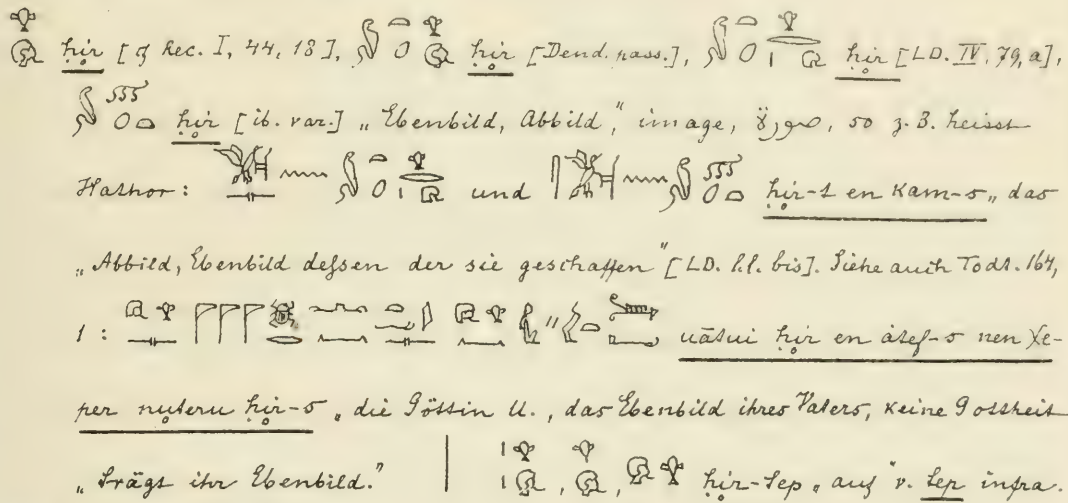 ḥir [cf Rec. I, 44, 18], ḥir [Dend. pass.], ḥir [LD. IV. 79, a],
ḥir [ib. var.] „Ebenbild, Abbild", image, صورة, so z. B. heisst
Hathor: und ḥir-t en Kam-s „das
„Abbild, Ebenbild dessen der sie geschaffen" [LD. l. l. bis]. Siehe auch Todt. 164,
1: uātui ḥir en átef-s nen χe-
per nuteru ḥir-s „die Göttin U., das Ebenbild ihres Vaters, keine Gottheit
„trägt ihr Ebenbild." | ḥir-tep „auf" v. tep infra.